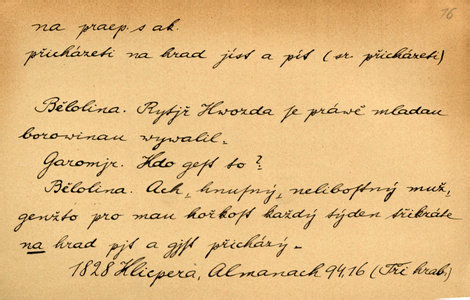 16
na praep. s ak.
přicházeti na hrad jíst a pít (sr. přicházeti)
Bělolina. Rytjř Hwozda je práwě mladau
borowinau wywalil.
Garomjr. Kdo gest to?
Bělolina. Ach, hnusný, nelibostný muž,
genžto pro mau hořkost každý týden třikráte
na hrad pjt a gjst přicházý.
1828 Klicpera, Almanach 94,16 (Tři hrab.)